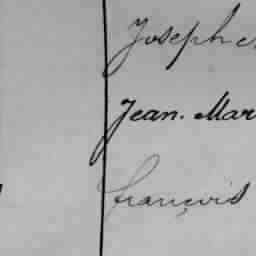 Joseph
Jean. Mar
françois